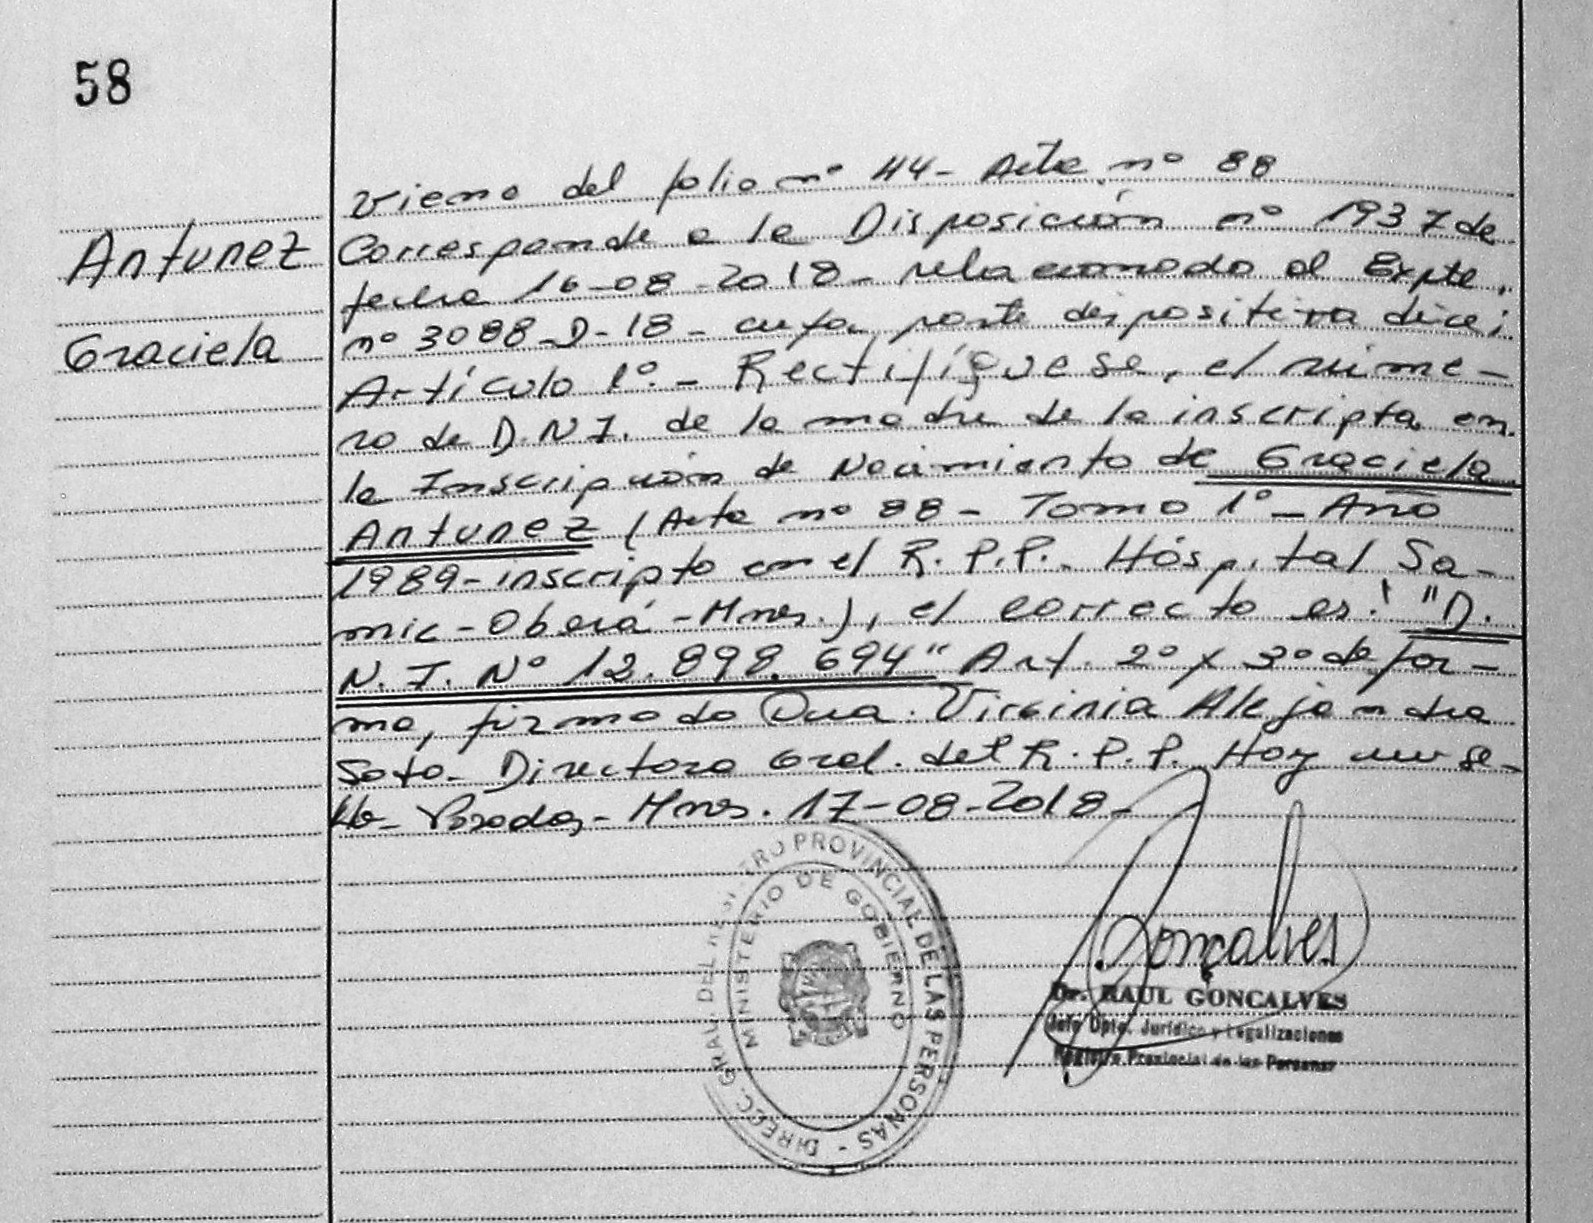 58
Antunez
Graciela
Viene del folio nº 44- Acta nº 88
Corresponde a la Disposición nº 1937 de
fecha 16-08-2018- relacionado al Expte.
nº 3088-D-18- cuya parte dispositiva dice:
Artículo 1º.- Rectifíquese, el núme-
ro de D.N.I. de la madre de la inscripta en
la Inscripción de Nacimiento de Graciela
Antunez (Acta nº 88- Tomo 1º- Año
1989-inscripto en el R.P.P.- Hospital Sa-
mic-Oberá-Mnes.), el correcto es: "D.
N.I. Nº 12.898.694" Art. 2º y 3º de for-
ma, firmado Dra. Virginia Alejandra
Soto- Directora Gral. del R.P.P. Hoy un se-
llo- Posadas- Mnes. 17-08-2018-
DIRECC. GRAL. DEL REGISTRO PROVINCIAL DE LAS PERSONAS -
MINISTERIO DE GOBIERNO
Gonçalves
Dr. RAUL GONCALVES
Jefe Dpto. Jurídico y Legalizaciones
Registro Provincial de las Personas